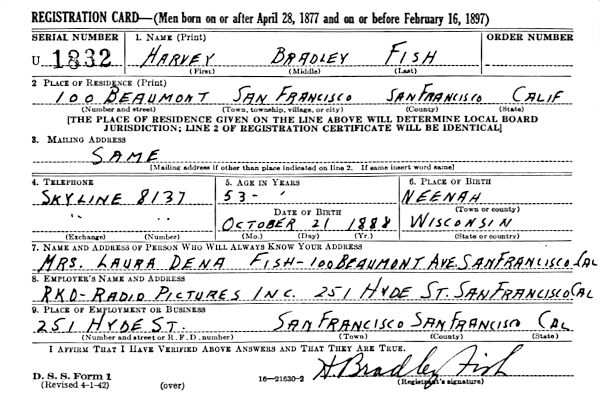 REGISTRATION CARD—(Men born on or after April 28, 1877 and on or before February 16, 1897)
SERIAL NUMBER 1. NAME (Print) ORDER NUMBER
U 1832 HARVEY BRADLEY FISH
(First) (Middle) (Last)
2 PLACE OF RESIDENCE (Print)
100 BEAUMONT SAN FRANCISCO SAN FRANCISCO CALIF
(Number and street) (Town, township, village, or city) (County) (State)
[THE PLACE OF RESIDENCE GIVEN ON THE LINE ABOVE WILL DETERMINE LOCAL BOARD
JURISDICTION; LINE 2 OF REGISTRATION CERTIFICATE WILL BE IDENTICAL]
3. MAILING ADDRESS
SAME
[Mailing address if other than place indicated on line 2. If same insert word same]
4. TELEPHONE 5. AGE IN YEARS 6. PLACE OF BIRTH
SKYLINE 8137 53- NEENAH
DATE OF BIRTH (Town or county)
" " OCTOBER 21 1888 WISCONSIN
(Exchange) (Number) (Mo.) (Day) (Yr.) (State or country)
7. NAME AND ADDRESS OF PERSON WHO WILL ALWAYS KNOW YOUR ADDRESS
MRS. LAURA DENA FISH-100 BEAUMONT AVE. SAN FRANCISCO CAL
8. EMPLOYER'S NAME AND ADDRESS
RKO-RADIO PICTURES INC. 251 HYDE ST. SAN FRANCISCO CAL
9. PLACE OF EMPLOYMENT OR BUSINESS
251 HYDE ST. SAN FRANCISCO SAN FRANCISCO CAL
(Number and street or R. F. D. number) (Town) (County) (State)
I AFFIRM THAT I HAVE VERIFIED ABOVE ANSWERS AND THAT THEY ARE TRUE.
H. Bradley Fish
D. S. S. Form 1 (Registrant's signature)
(Revised 4-1-42) (over) 16—21630-2